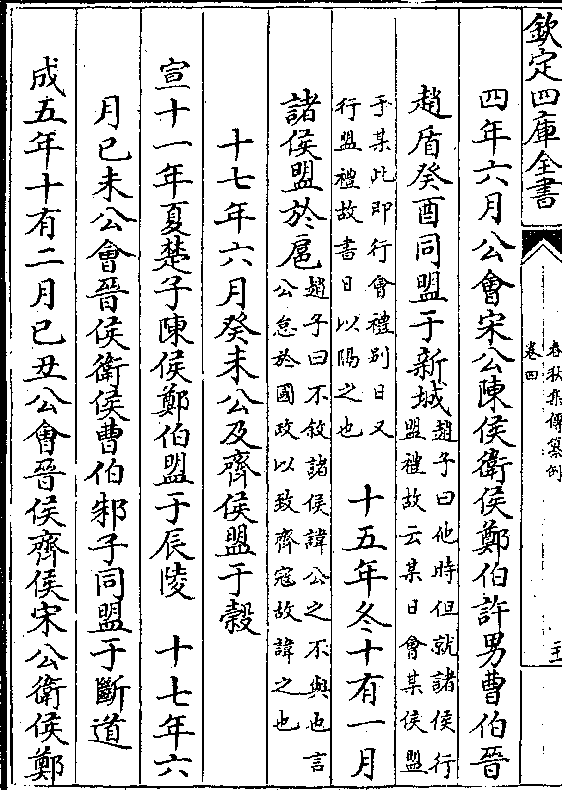 欽定四庫全書
春秋集傳纂例
卷四
四年六月公會宋公陳侯衛侯鄭伯許男曹伯晉
趙盾癸酉同盟于新城趙子曰他時但就諸侯行
盟禮故云某日會某侯盟
于某此即行會禮別日又
行盟禮故書日以隔之也
十五年冬十有一月
諸侯盟於扈趙子曰不敘諸侯諱公之不與也言
公怠於國政以致齊寇故諱之也
十七年六月癸未公及齊侯盟于穀
宣十一年夏楚子陳侯鄭伯盟于辰陵 十七年六
月已未公會晉侯衛侯曹伯邾子同盟于斷道
成五年十有二月已丑公會晉侯齊侯宋公衛侯鄭